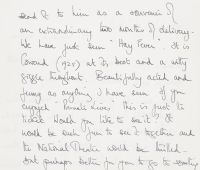 Send it to him as a souvenir of
an extraordinary two months of delivery.
We have just seen 'Hay Fever'. It is
Coward (1925) at its best and a witty
giggle throughout. Beautifully acted and
funny as anything I have seen if you
enjoyed 'Private Lives'. This is just the
ticket. Would you like to see it? It
would be such fun to see it together and
the National Theatre would be
but perhaps better for you to go to